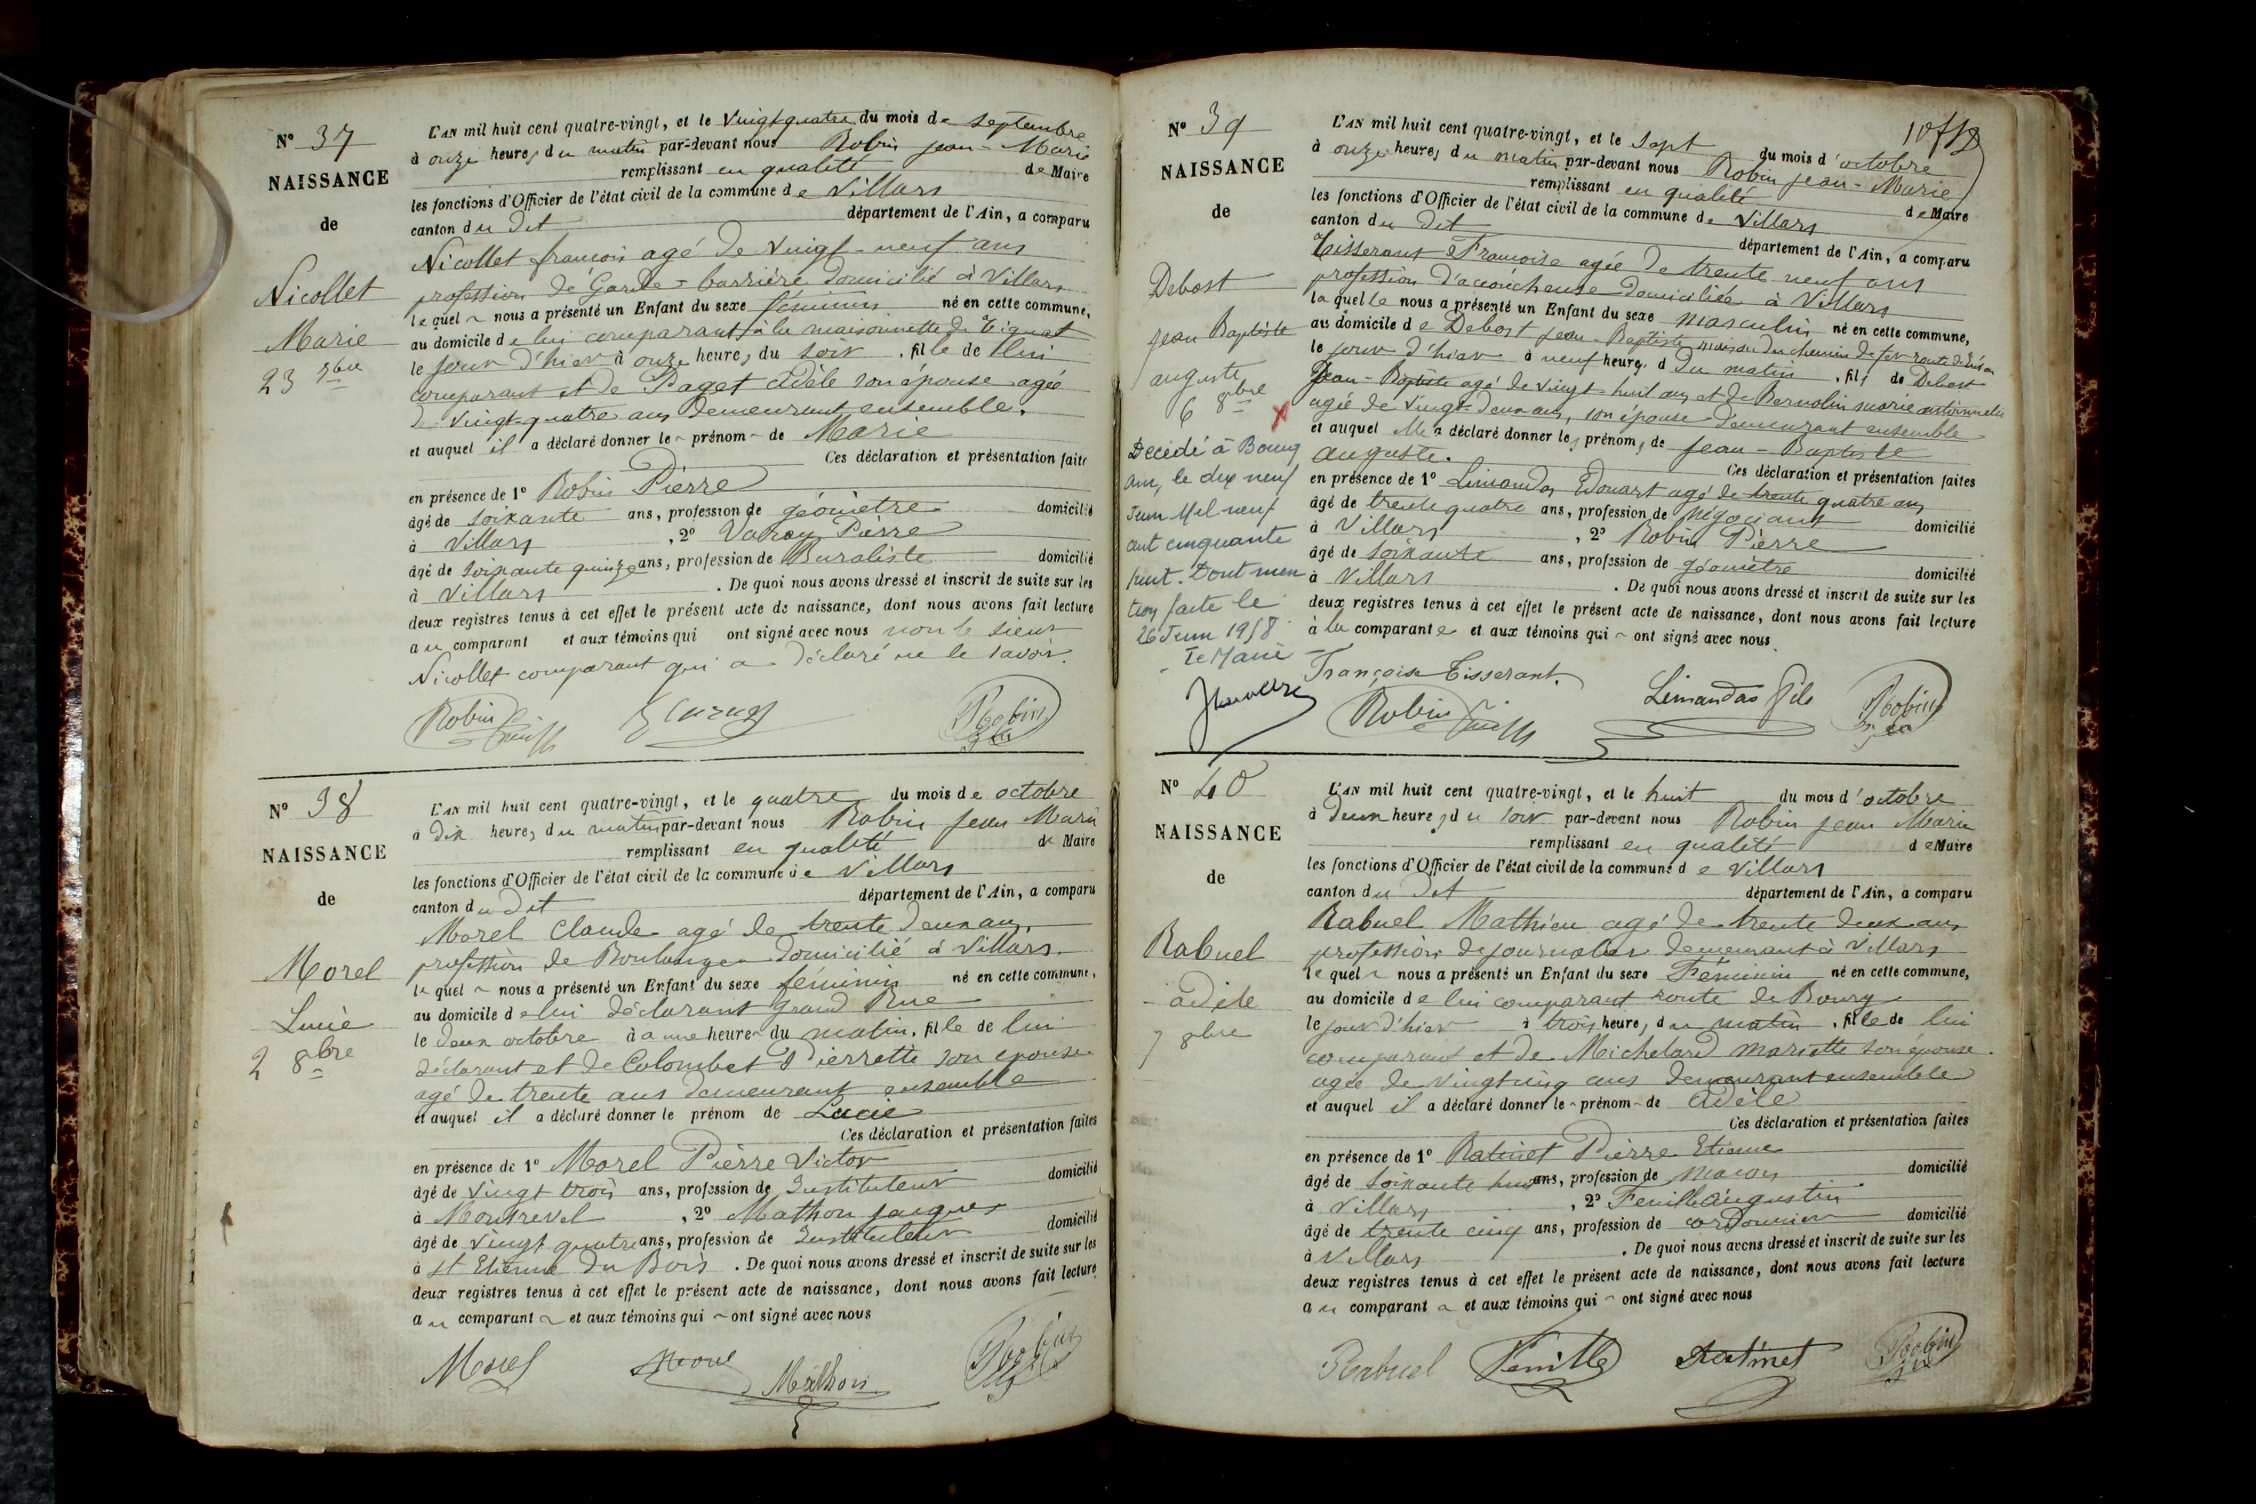 N° 37
NAISSANCE
de
Nicollet
Marie
23 7bre
L'AN mil huit cent quatre-vingt, et le vingt quatre du mois de septembre
à onze heures du matin par-devant nous Robin jean-Marie
remplissant en qualité de Maire
les fonctions d'Officier de l'état civil de la commune de Villars
canton du dit département de l'Ain, a comparu
Nicollet francois agé de vingt-neuf ans
profession de Garde-barrière domicilié à Villars
lequel nous a présenté un Enfant du sexe féminin né en cette commune,
au domicile de lui comparant à la maisonnette du
le jour d'hier à onze heures du soir, fille de lui
comparant et de Paget Adèle son épouse agée
de vingt-quatre ans demeurant ensemble.
et auquel il a déclaré donner le prénom de Marie
Ces déclaration et présentation faites
en présence de 1° Robin Pierre
âgé de soixante ans, profession de géomètre domicilié
à Villars, 2° Varoy Pierre
âgé de soixante quinze ans, profession de Buraliste domicilié
à Villars. De quoi nous avons dressé et inscrit de suite sur les
deux registres tenus à cet effet le présent acte de naissance, dont nous avons fait lecture
au comparant et aux témoins qui ont signé avec nous non le sieur
Nicollet comparant qui a déclaré ne le savoir.
Robin Robin
N° 38
NAISSANCE
de
Morel
Lucie
2 8bre
L'AN mil huit cent quatre-vingt, et le quatre du mois de octobre
à dix heures du matin par-devant nous Robin jean Marie
remplissant en qualité de Maire
les fonctions d'Officier de l'état civil de la commune de Villars
canton du dit département de l'Ain, a comparu
Morel Claude agé de trente deux ans
profession de Boulanger domicilié à Villars
lequel nous a présenté un Enfant du sexe féminin né en cette commune,
au domicile de lui déclarant Grand Rue
le deux octobre à une heure du matin, fille de lui
déclarant et de Colombet Pierrette son epouse
agé de trente ans demeurant ensemble
et auquel il a déclaré donner le prénom de Lucie
Ces déclaration et présentation faites
en présence de 1° Morel Pierre Victor
âgé de vingt trois ans, profession de Instituteur domicilié
à Montrevel, 2° Mathon jacques
âgé de vingt quatre ans, profession de Instituteur domicilié
à St Etienne du Bois. De quoi nous avons dressé et inscrit de suite sur les
deux registres tenus à cet effet le présent acte de naissance, dont nous avons fait lecture
au comparant et aux témoins qui ont signé avec nous
Morel Morel Mathon Robin
N° 39
NAISSANCE
de
Debost
jean Baptiste
auguste
6 8bre
Décédé à Bourg
Ain, le dix neuf
Juin Mil neuf
cent cinquante
huit. Dont men
tion faite le
26 Juin 1958
Le Maire
L'AN mil huit cent quatre-vingt, et le sept du mois d'octobre
à onze heures du matin par-devant nous Robin jean-Marie
remplissant en qualité de Maire
les fonctions d'Officier de l'état civil de la commune de Villars
canton du dit département de l'Ain, a comparu
Tisserant Francoise agée de trente neuf ans
profession d'accoucheuse domiciliée à Villars
laquelle nous a présenté un Enfant du sexe masculin né en cette commune,
au domicile de Debost jean-Baptiste maison du chemin de fer route de
le jour d'hier à neuf heures du matin, fils de Debost
Jean-Baptiste agé de vingt-huit ans et de Bernolin marie antoinette
agée de vingt-deux ans, son épouse demeurant ensemble
et auquel elle a déclaré donner les prénoms de jean-Baptiste
auguste.
Ces déclaration et présentation faites
en présence de 1° Limandas Edouart agé de trente quatre ans
âgé de trente quatre ans, profession de négociant domicilié
à Villars, 2° Robin Pierre
âgé de soixante ans, profession de géomètre domicilié
à Villars. De quoi nous avons dressé et inscrit de suite sur les
deux registres tenus à cet effet le présent acte de naissance, dont nous avons fait lecture
à la comparante et aux témoins qui ont signé avec nous.
Françoise Tisserant.
Robin Limandas fils Robin
N° 40
NAISSANCE
de
Rabuel
adèle
7 8bre
L'AN mil huit cent quatre-vingt, et le huit du mois d'octobre
à deux heures du soir par-devant nous Robin jean Marie
remplissant en qualité de Maire
les fonctions d'Officier de l'état civil de la commune de Villars
canton du dit département de l'Ain, a comparu
Rabuel Mathieu agé de trente deux ans
profession de journalier demeurant à Villars
lequel nous a présenté un Enfant du sexe Féminin né en cette commune,
au domicile de lui comparant route de Bourg
le jour d'hier à trois heures du matin, fille de lui
comparant et de Michelard Mariette son épouse
agée de vingt cinq ans demeurant ensemble
et auquel il a déclaré donner le prénom de Adèle
Ces déclaration et présentation faites
en présence de 1° Ratinet Pierre Etienne
âgé de soixante huit ans, profession de macon domicilié
à Villars, 2° Feuille Augustin
âgé de trente cinq ans, profession de cordonnier domicilié
à Villars. De quoi nous avons dressé et inscrit de suite sur les
deux registres tenus à cet effet le présent acte de naissance, dont nous avons fait lecture
au comparant et aux témoins qui ont signé avec nous
Rabuel Feuille Ratinet Robin